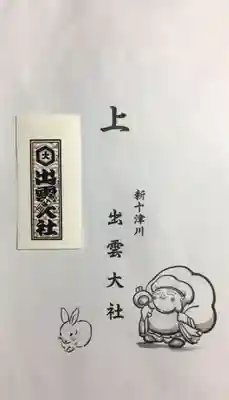 上
新十津川
出雲大社
大
出雲大社